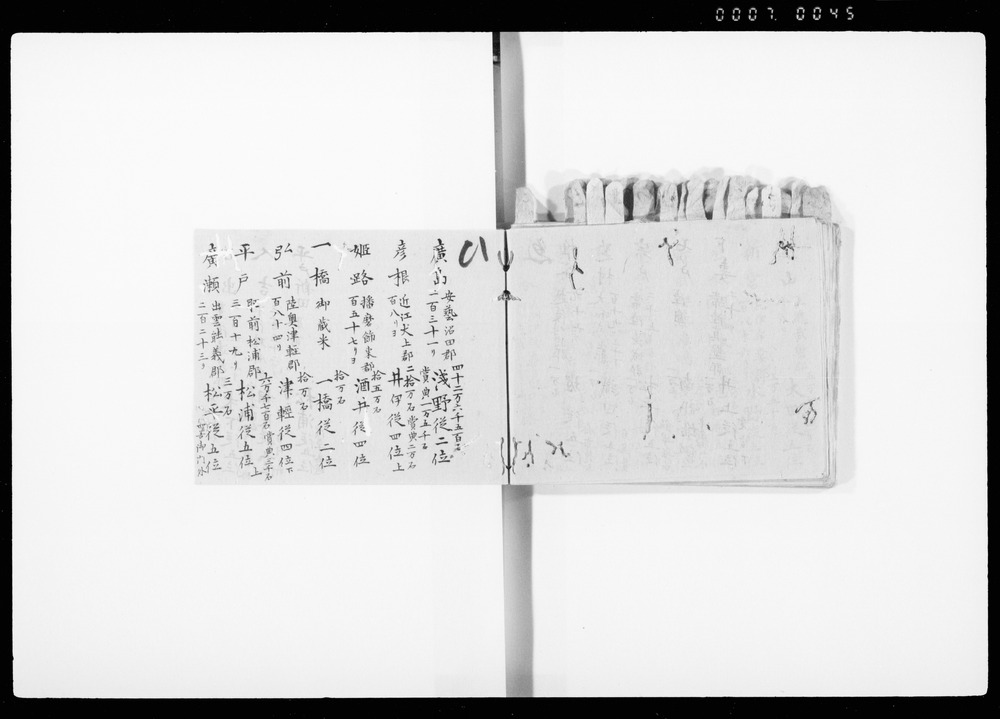 0007 0045
ひ
廣島 安藝沼田郡 四十二万六千五百石
二百三十一リ 浅野従二位
賞典一万五千石
彦根 近江犬上郡 二拾万石賞典二万石
百八リヨ 井伊従四位上
姫路 播磨飾東郡 拾五万石
百五十七リヨ 酒井従四位
一橋 御蔵米 拾万石
一橋従二位
弘前 陸奥津軽郡 拾万石
百八十四リ 津軽従四位下
平戸 肥前松浦郡 六万千七百石賞典三千石
三百十九リ 松浦従五位上
廣瀬 出雲能義郡 三万石
二百二十三リ 松平従五位